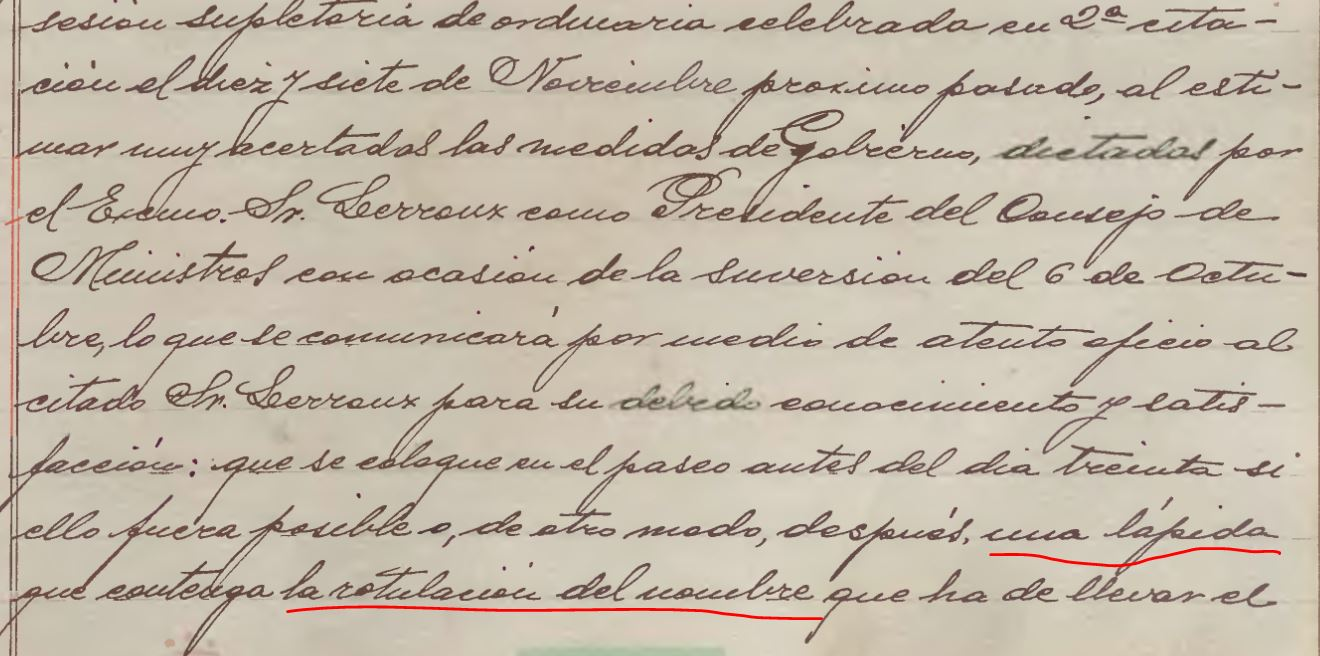 sesión supletoria de ordinaria celebrada en 2ª cita-
ción el diez y siete de Noviembre proximo pasado, al esti-
mar muy acertadas las medidas de Gobierno, dictadas por
el Excmo. Sr. Lerroux como Presidente del Consejo de
Ministros con ocasión de la suversión del 6 de Octu-
bre, lo que se comunicará por medio de atento oficio al
citado Sr. Lerroux para su debido conocimiento y satis-
facción: que se coloque en el paseo antes del dia treinta si
ello fuera posible o, de otro modo, después, una lápida
que contenga la rotulación del nombre que ha de llevar el